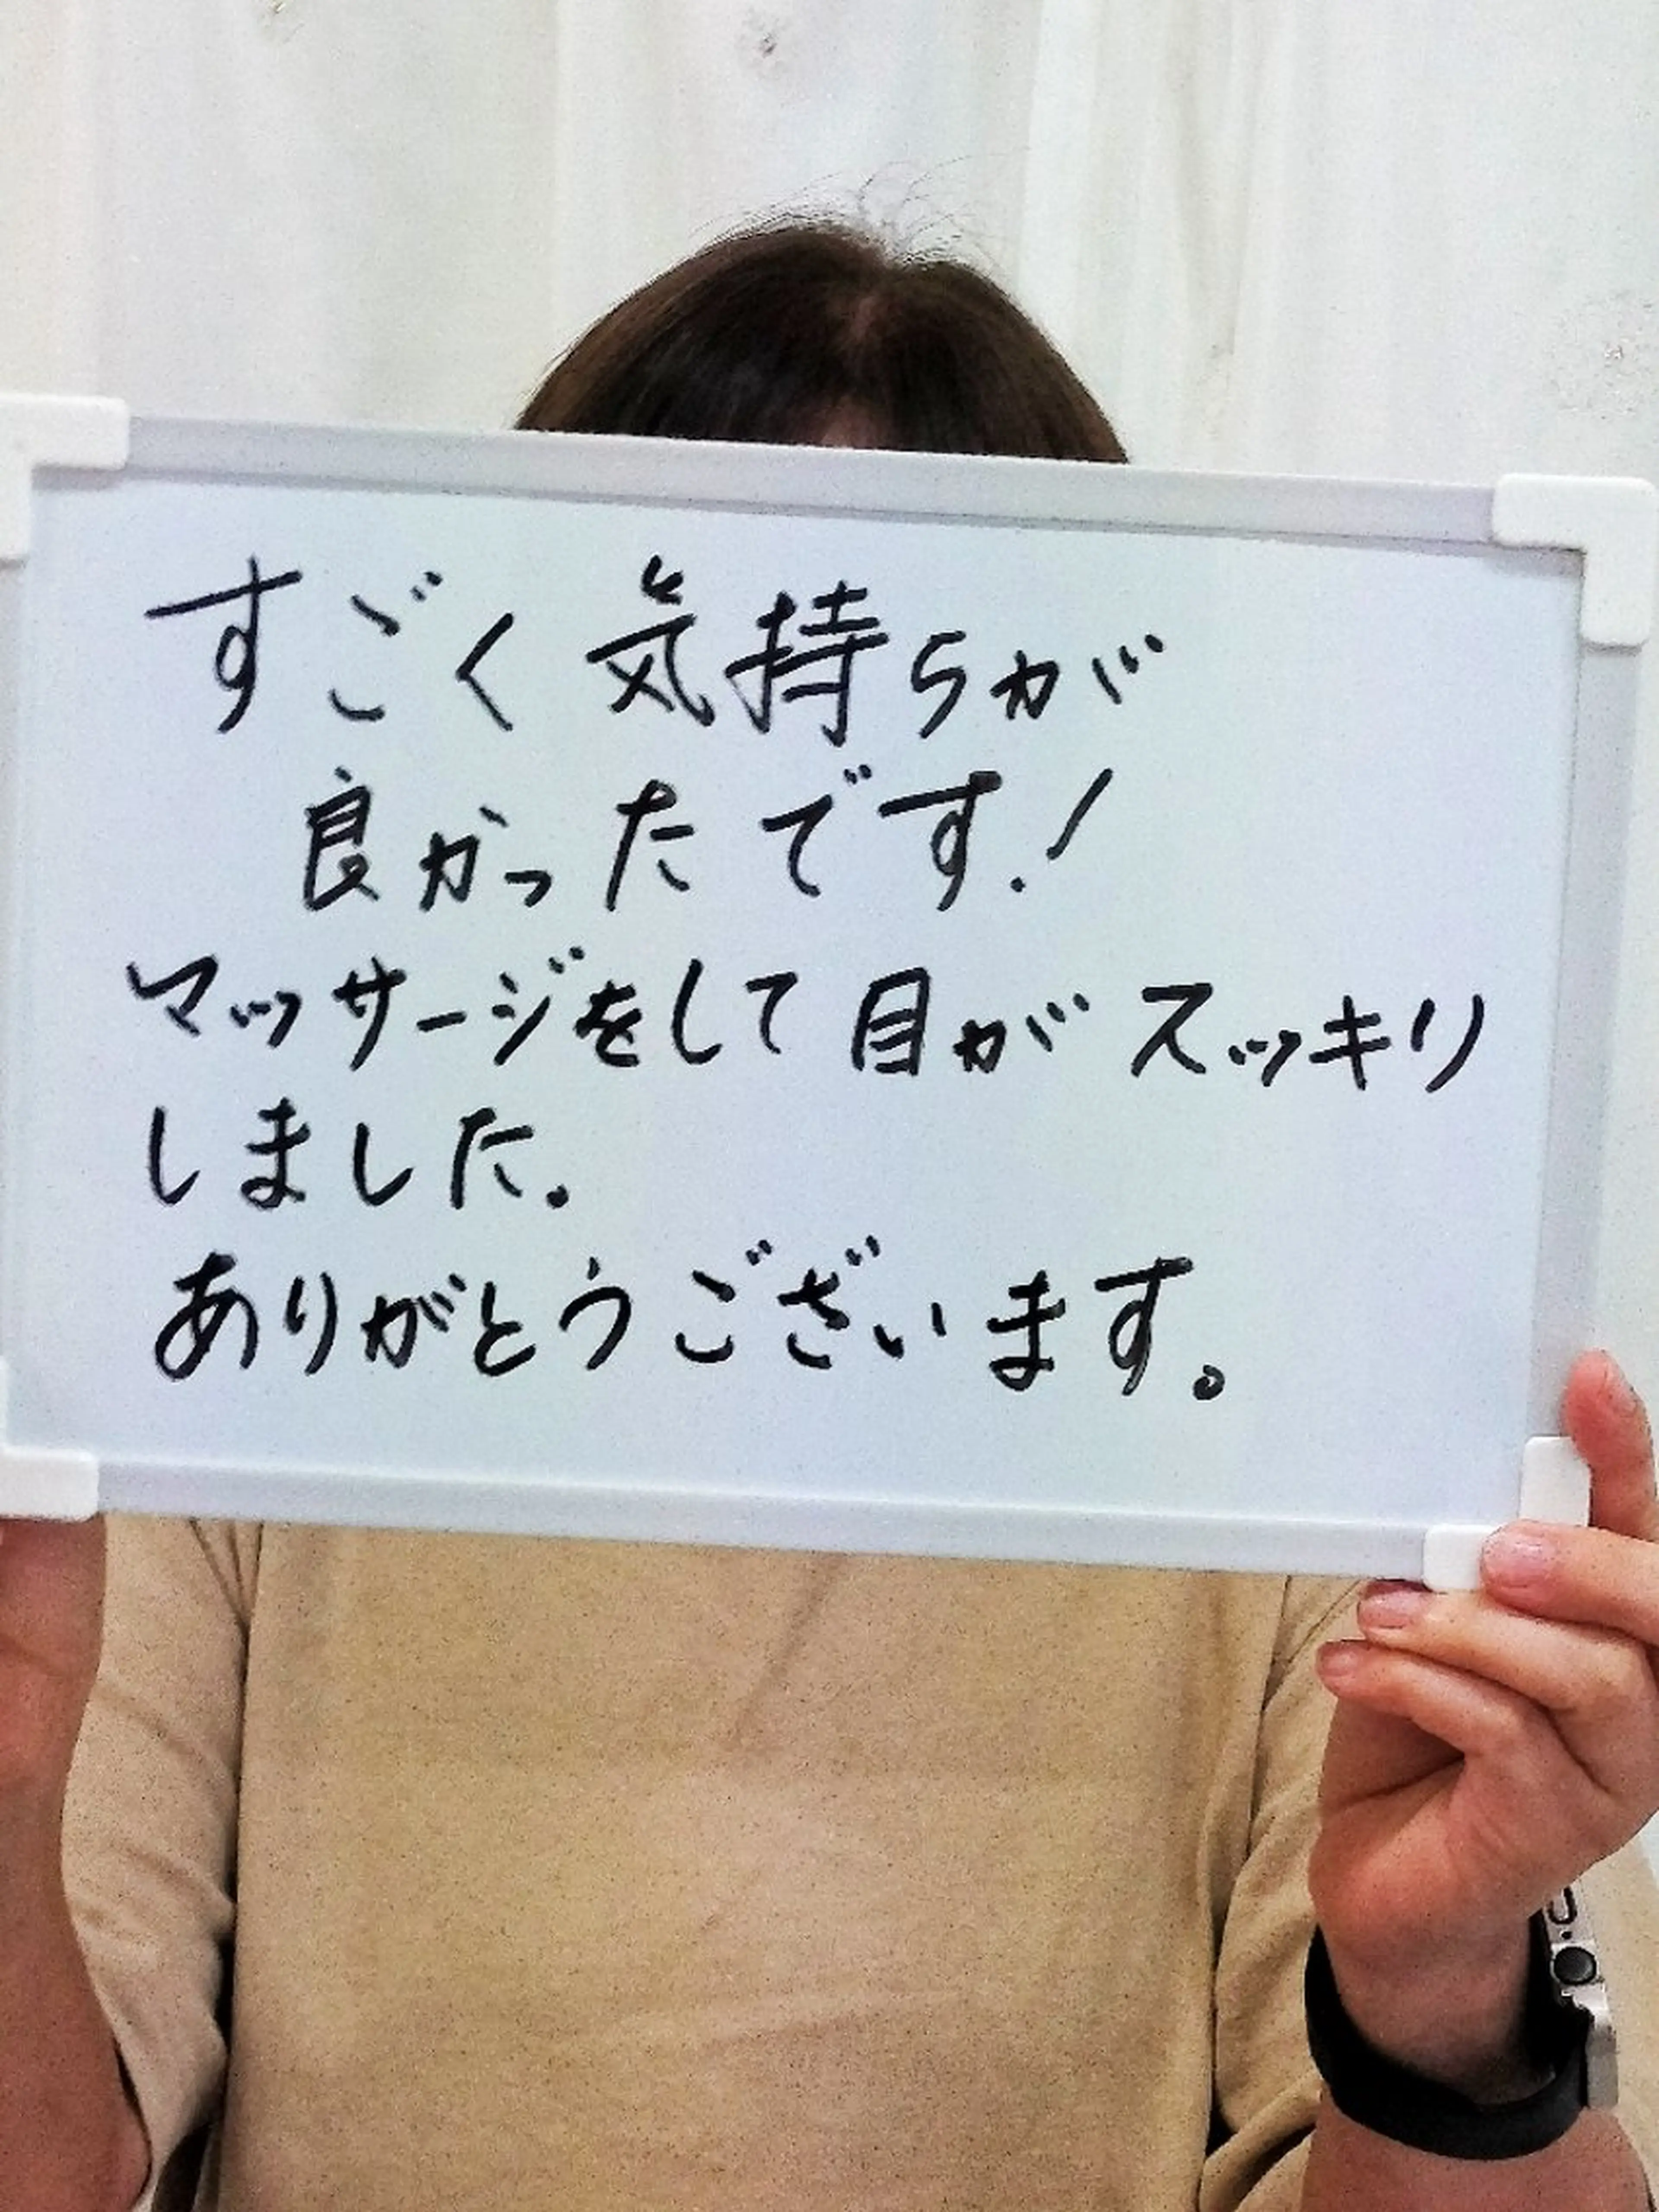 すごく気持ちが
良かったです!
マッサージをして目がスッキリ
しました。
ありがとうございます。